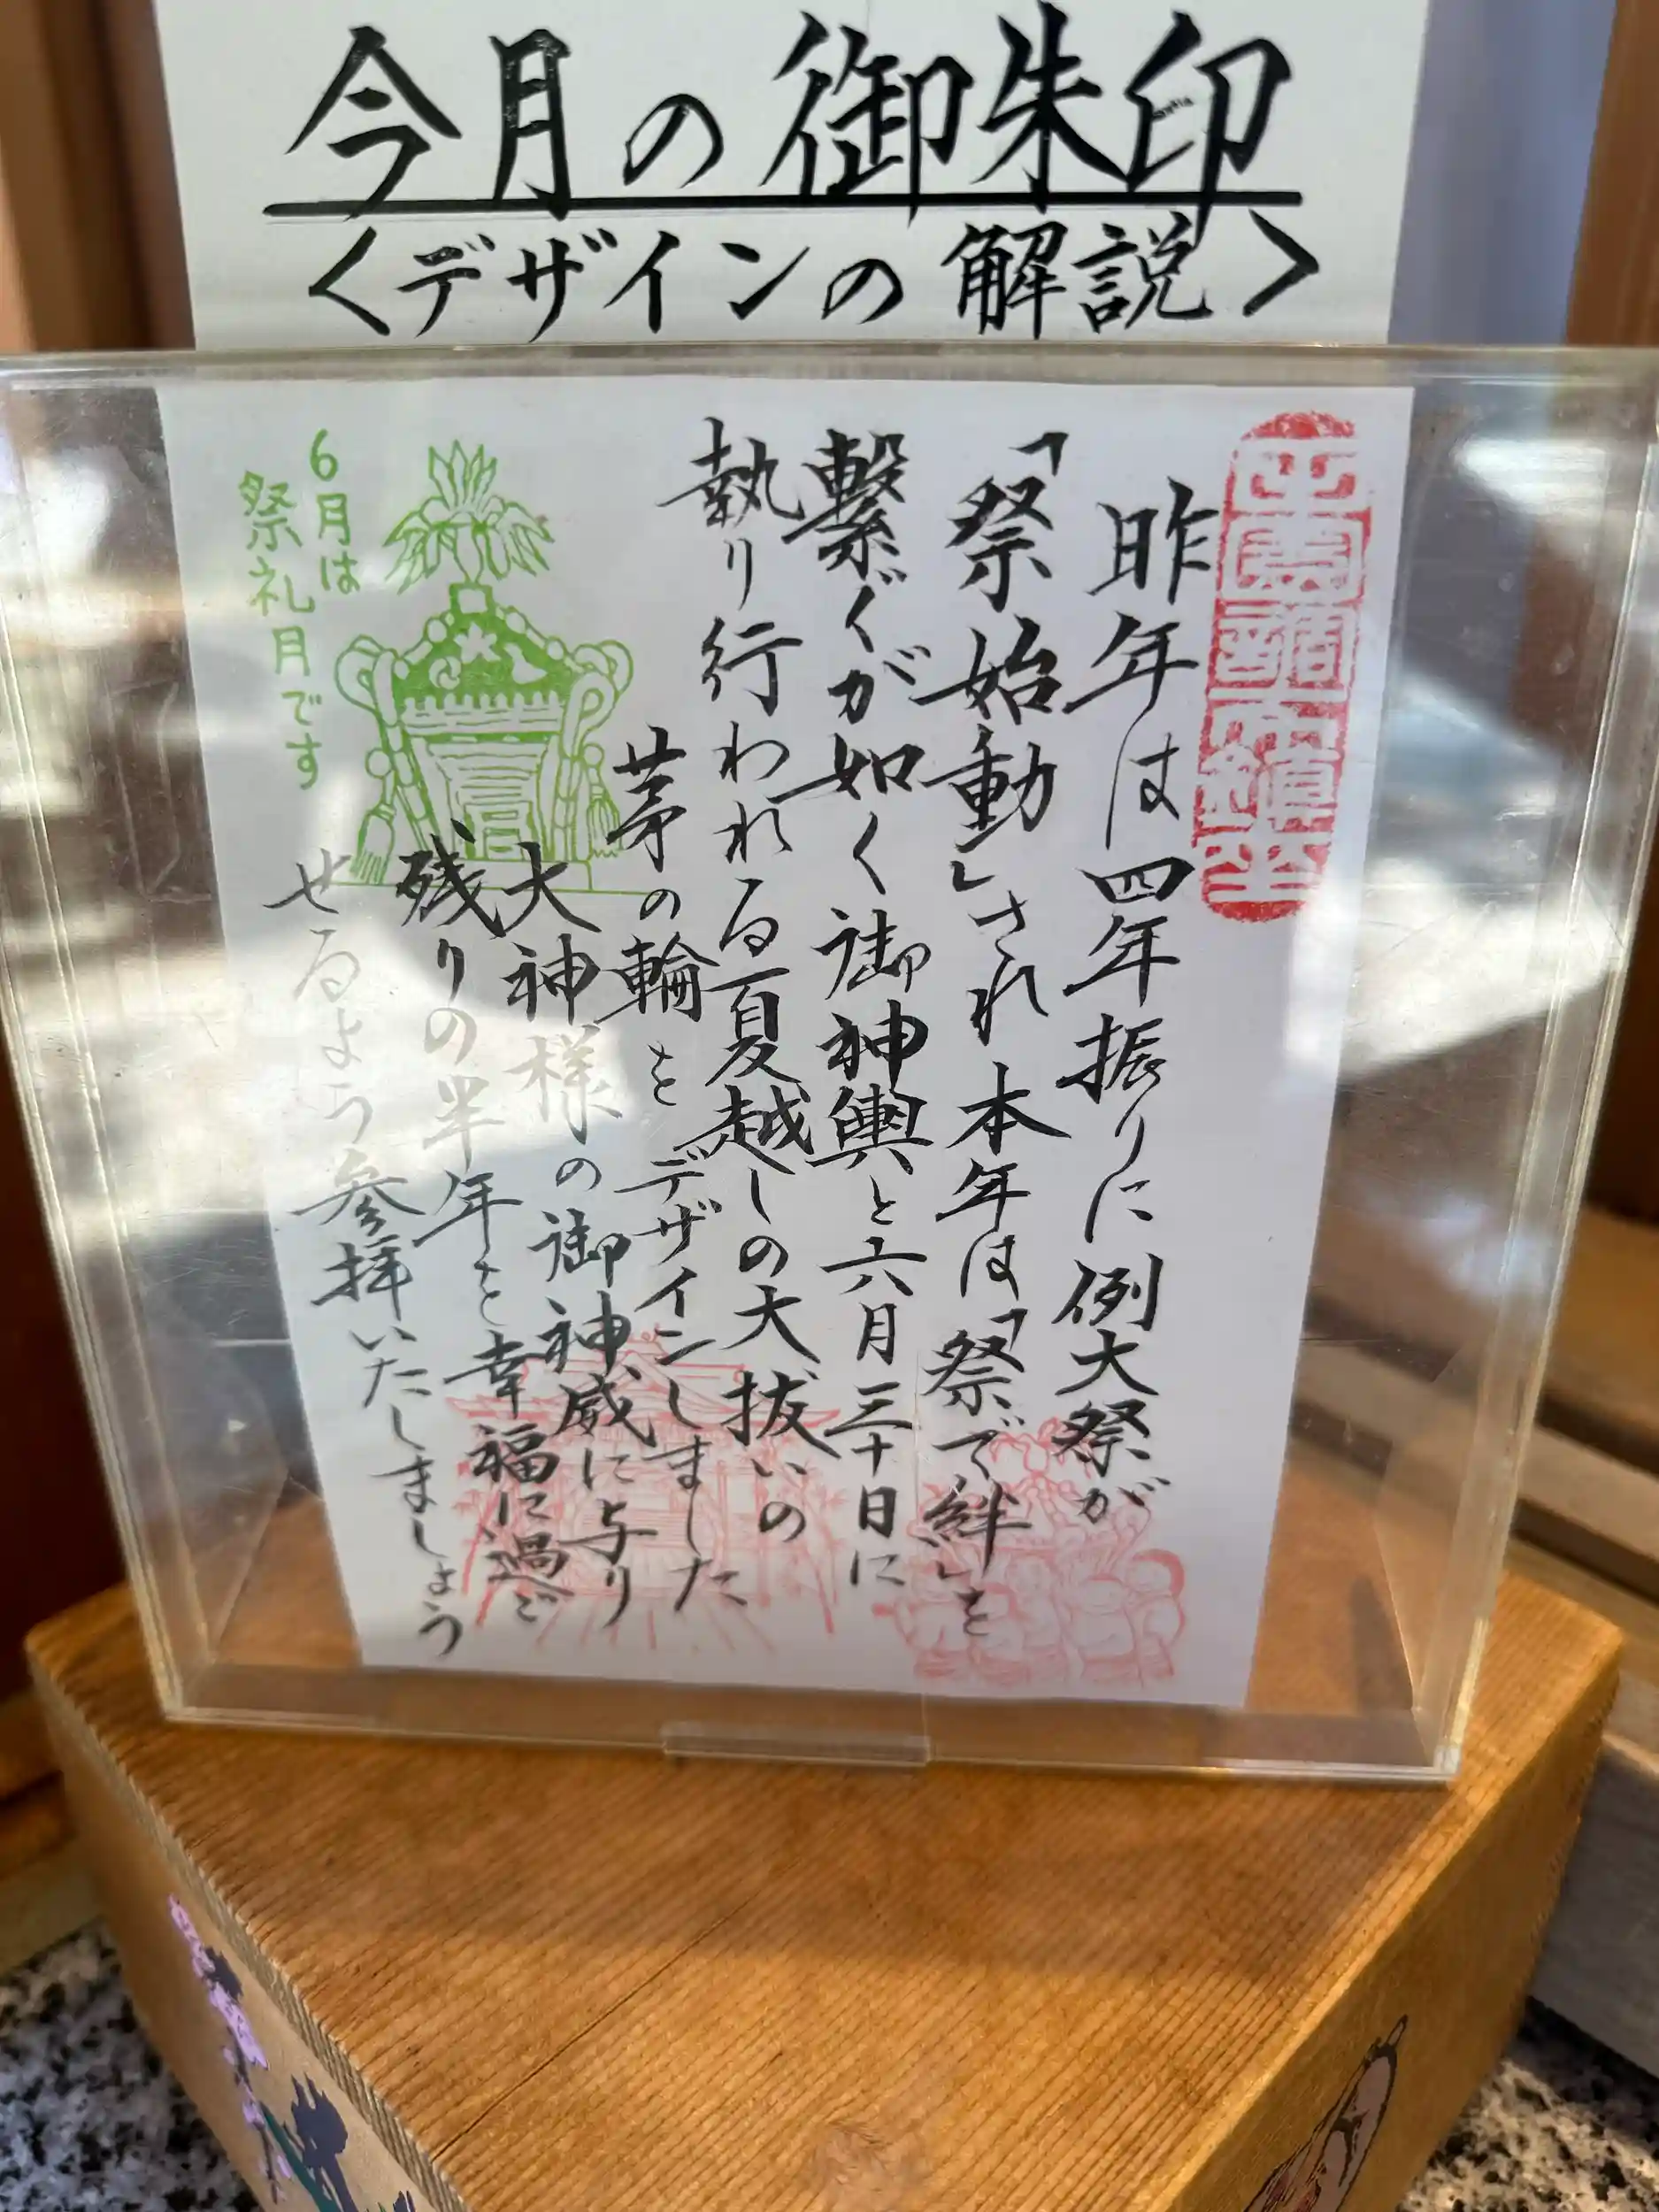 今月の御朱印
<デザインの解説>
昨年は四年振りに例大祭が
「祭始動」され本年は「祭で絆」を
繋ぐが如く御神輿と六月三十日に
執り行われる夏越しの大拔いの
茅の輪をデザインしました
大神様の御神威に与り
残りの半年を幸福に過ご
せるよう参拝いたしましょう
6月は
祭礼月です